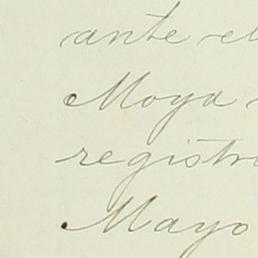 ante el
Moya
registr
Mayo